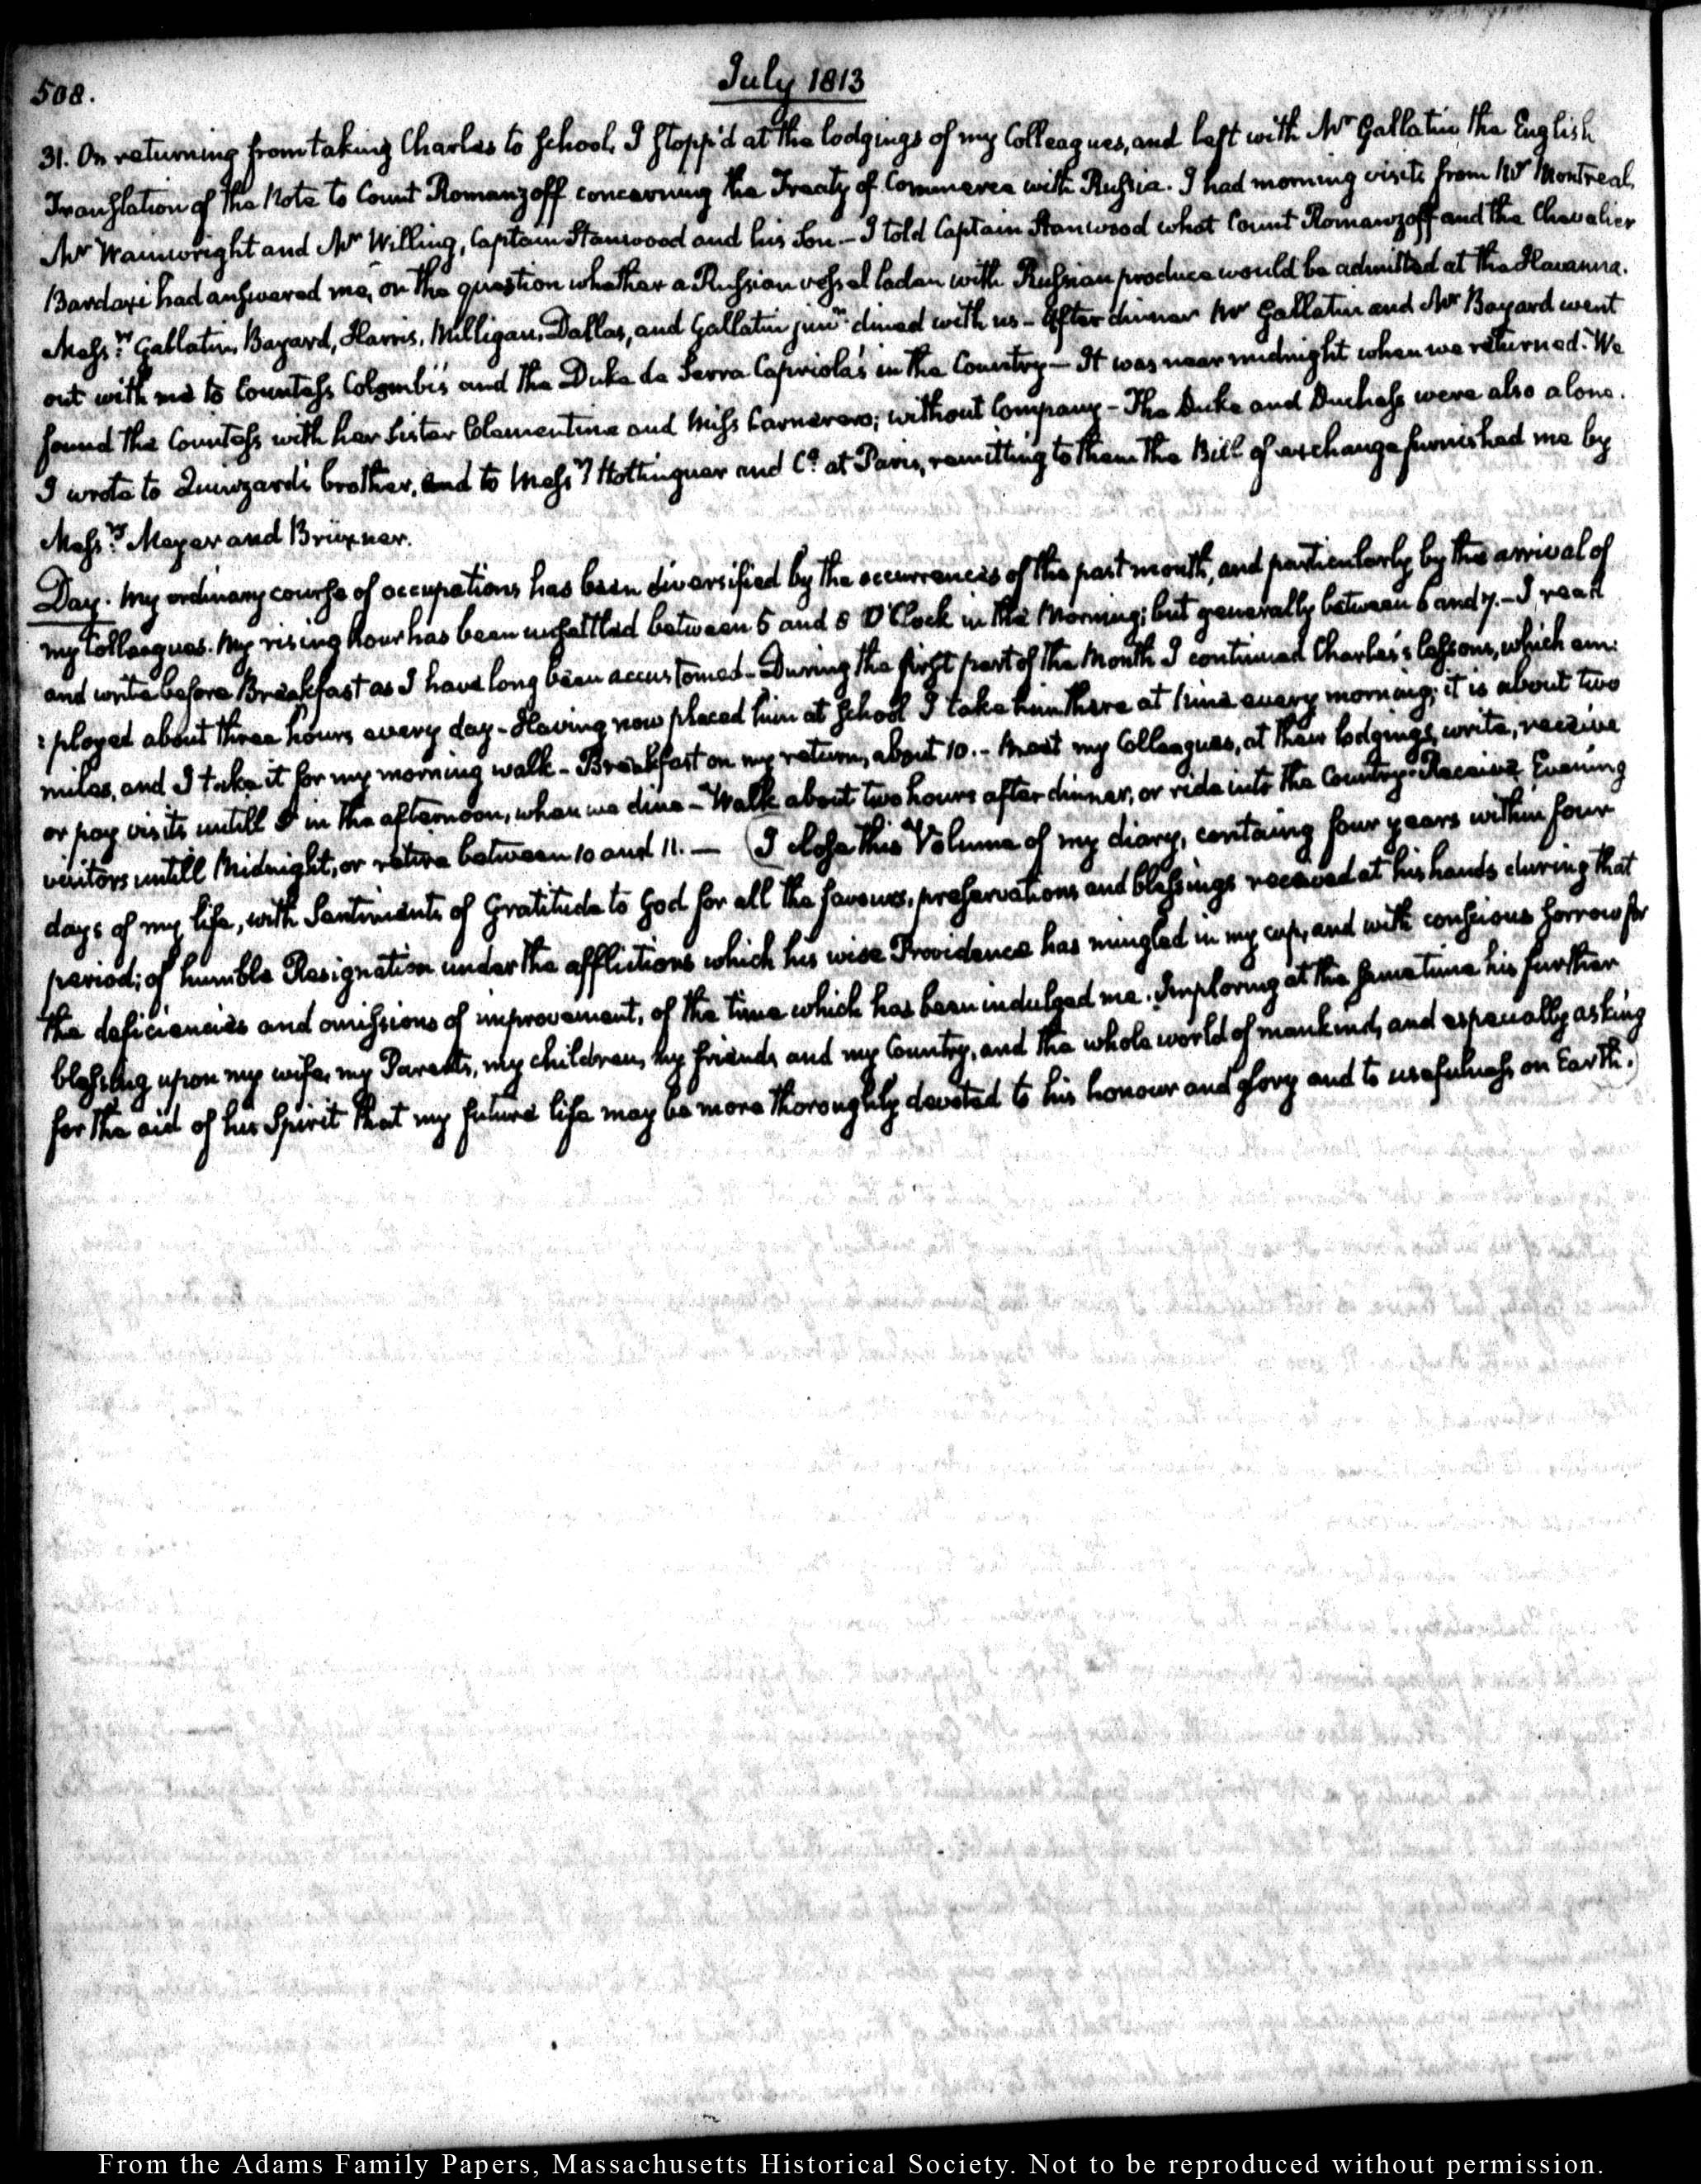 508.
July 1813
31. On returning from taking Charles to School, I stopp'd at the lodgings of my Colleagues, and left with Mr Gallatin the English
Translation of the Note to Count Romanzoff concerning the Treaty of Commerce with Russia. I had morning visits from Mr Montreal,
Mr Wainwright and Mr Willing, Captain Stanwood and his Son.- I told Captain Stanwood what Count Romanzoff and the Chevalier
Bardaxi had answered me, on the question whether a Russian vessel laden with Russian produce would be admitted at the Havanna.
Messrs Gallatin, Bayard, Harris, Milligan, Dallas, and Gallatin junr dined with us - After dinner Mr Gallatin and Mr Bayard went
out with me to Countess Colombi's and the Duke de Serra Capriola's in the Country - It was near midnight when we returned. We
found the Countess with her Sister Clementina and Miss Carnerero; without Company - The Duke and Duchess were also alone.
I wrote to brother, and to Messrs Hottinguer and Co. at Paris, remitting to them the Bill of exchange furnished me by
Messrs Meyer and Brüxner.
Day. My ordinary course of occupations has been diversified by the occurrences of the past month, and particularly by the arrival of
my Colleagues. My rising hour has been unsettled between 5 and 8 O'Clock in the Morning; but generally between 6 and 7.- I read
and write before Breakfast as I have long been accustomed - During the first part of the Month I continued Charles's lessons, which em:
:ployed about three hours every day - Having now placed him at School I take him there at nine every morning; it is about two
miles, and I take it for my morning walk - Breakfast on my return, about 10.- Meet my Colleagues, at their lodgings, write, receive
or pay visits untill 5 in the afternoon, when we dine - Walk about two hours after dinner, or ride into the Country - Receive Evening
visitors untill Midnight, or retire between 10 and 11. — (I close this Volume of my diary, containg four years within four
days of my life, with Sentiments of Gratitude to God for all the favours, preservations and blessings received at his hands during that
period; of humble Resignation under the afflictions which his wise Providence has mingled in my cup, and with conscious sorrow for
the deficiencies and omissions of improvement, of the time which has been indulged me. Imploring at the same time his further
blessing upon my wife, my Parents, my children, my friends and my Country, and the whole world of mankind, and especially asking
for the aid of his Spirit that my future life may be more thoroughly devoted to his honour and glory and to usefulness on Earth.)
From the Adams Family Papers, Massachusetts Historical Society. Not to be reproduced without permission.